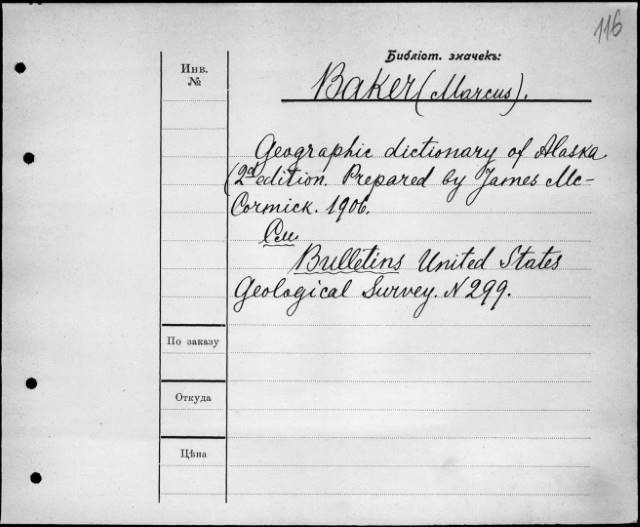 116
Библіот. значекъ:
Инв.
№
Baker (Marcus).
Geographic dictionary of Alaska
(2d edition. Prepared by James Mc-
Cormick. 1906.
См.
Bulletins United States
Geological Survey. N 299.
По заказу
Откуда
Цѣна